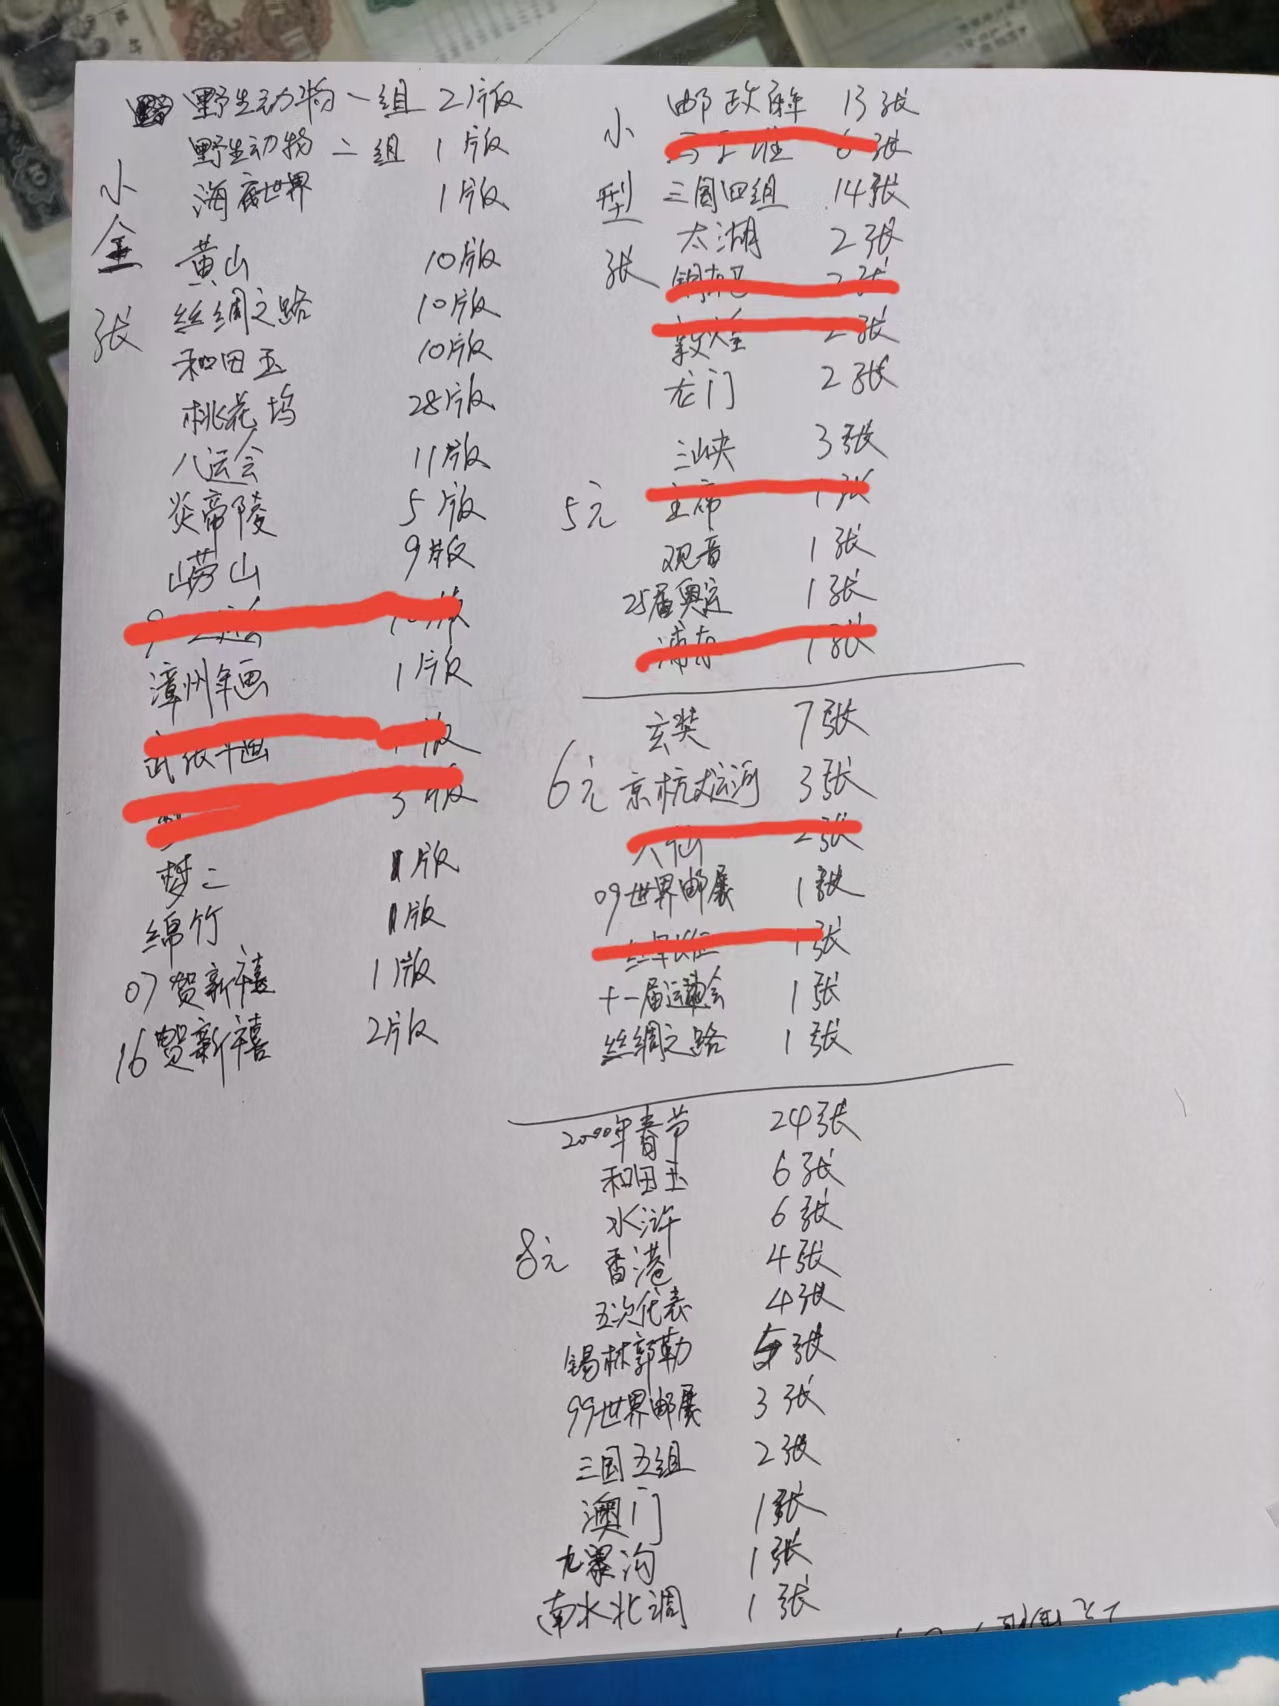 小全张
野生动物一组 2版
野生动物二组 1版
海底世界 1版
黄山 10版
丝绸之路 10版
和田玉 10版
桃花坞 28版
八运会 11版
炎帝陵 5版
崂山 9版
版
漳州年画 1版
年画 版
3版
梦二 1版
绵竹 1版
07贺新禧 11版
16贺新禧 2版
小型张
5元
邮政 13张
6张
三国四组 14张
太湖 2张
2张
敦煌 2张
龙门 2张
三峡 3张
主席 1张
观音 1张
25届奥运 1张
18张
6元
玄奘 7张
京杭大运河 3张
八仙 2张
09世界邮展 1张
1张
十一届运动会 1张
丝绸之路 1张
8元
2000年春节 24张
和田玉 6张
水浒 6张
香港 4张
五次代表 4张
锡林郭勒 5张
99世界邮展 3张
三国五组 2张
澳门 1张
九寨沟 1张
南水北调 1张